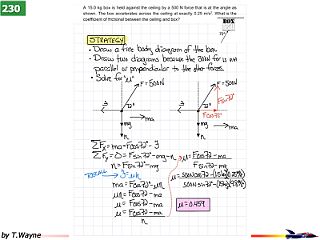 230
A 15.0 kg box is held against the ceiling by a 500 N force that is at the angle as
shown. The box accelerates across the ceiling at exactly 0.25 m/s². What is the
coefficient of frictional between the ceiling and box?
BOX
STRATEGY
• Draw a free body diagram of the box
• Draw two diagrams because the 500N Force is not
parallel or perpendicular to the other forces.
• Solve for "μ"
F=500N
F=500N
72°
72°
Fcos72°
ma
ma
mg
mg
n
n
ΣFx = ma = Fcos72° - f
ΣFy = 0 = Fsin72° - mg - n
n = Fsin72° - mg
ma = Fcos72° - μn
μn = Fcos72 - ma
μ = Fcos72 - ma
n
μ = Fcos72 - ma
Fsin72° - mg
μ = 0.459
by T.Wayne